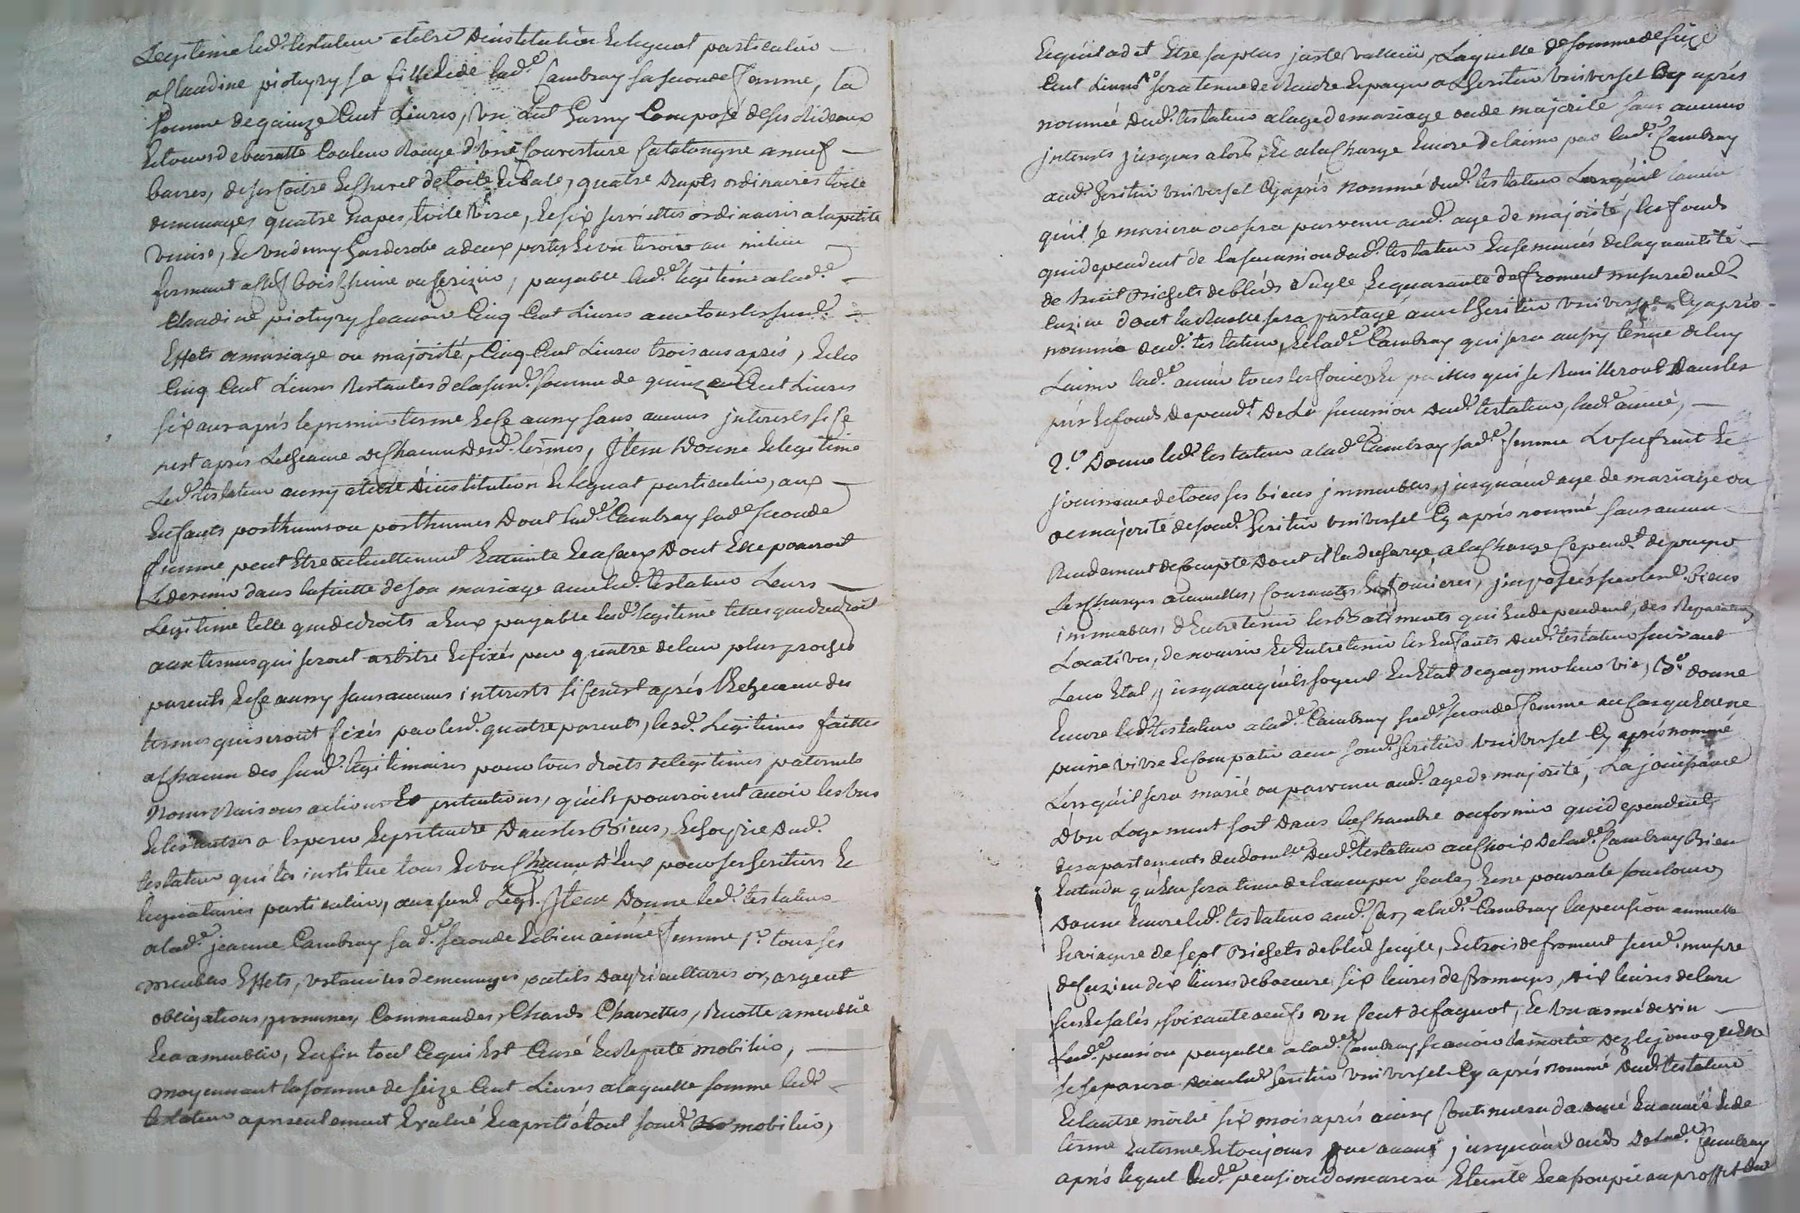 Legitime led.t testateur a titre d'institution et legat particulier
a Claudine piotyry sa fille et de lad.e Cambray sa seconde femme, la
somme de quinze Cent Livres, un Lit Garny Composé de ses Rideaux
et tours de buratte Couleur Rouge d'une Couverture Catalongne a neuf
barres, de ses Coitre et Chevet de toile et bale, quatre draps ordinaires toile
de menages quatre napes, toile, et six serviettes ordinaires a la petite
Venise, et un Garderobe a deux portes et un tiroir au milieu
fermant a clef bois Chene ou Cerizier, payable lad.e legitime a lad.e
Claudine piotyry scavoir Cinq Cent Livres avec tous les sud.
Effets a mariage ou majorité, Cinq Cent Livres trois ans après, et les
Cinq Cent Livres Restantes de la sud.e somme de quinze Cent Livres
six ans après le premier terme et ce aussy sans aucuns interests si ce
n'est après L'echeance de Chacun desd. termes, Item Donne et legitime
Led.t testateur aussy a titre d'institution et legat particulier, aux
Enfants posthumes ou posthumes Dont lad.e Cambray sad.e seconde
femme peut Etre actuellement Enceinte et a ceux Dont Elle pourroit
Le devenir dans la suitte de son mariage avec led.t testateur Leurs
Legitime telle que de droits a Eux payable lad.e legitime telle que de droit
aux termes qui seront arbitré et fixés par quatre de leur plus proches
parents, et ce aussy sans aucuns interests si ce n'est après l'Echeance des
termes qui seront fixés par lesd. quatre parents, lesd. Legitimes faittes
a Chacun des sud. legitimaires pour tous droits de legitimes paternels
noms Raisons actions et pretentions, qu'ils pourroient avoir
a Esperer et pretendre Dans les Biens, et hoirie dud.
testateur qui les institue tous et un Chacun d'Eux pour ses heritiers et
legataires particuliers, aux sud. Legs. Item Donne led.t testateur
a lad.e jeanne Cambray sad.e seconde et bien aimée femme 1.o tous ses
meubles Effets, ustancilles de menages, outils d'agricultures or, argent
obligations, promesses, Commandes, Chards Charettes, Recolte ameublie
et a ameublir, Enfin tout Ce qui Est Censé et Reputé mobilier,
moyennant la somme de seize Cent Livres a laquelle somme led.t
testateur a presentement Evalué et aprecié tout sond. mobilier,
Ce qu'il a dit Etre sa plus juste valleur, Laquelle de somme de seize
Cent Livres sera tenue de Rendre et payer a L'heritier universel Cy après
nommé dud. testateur a l'age de mariage ou de majorité sans aucuns
interests jusques alors, Et a la Charge Encore de laisser par lad.e Cambray
aud. heritier universel Cy après nommé dud. testateur Lorsqu'il
qu'il se mariera ou sera parvenu aud. age de majorité, les fonds
qui dependent de la succession dud. testateur Ensemencés de la quantité
de huit Bichets de bled Seigle, et quarante de froment mesure de
Cuzieu dont la Recolte sera partagé avec l'heritier universel Cy après
nommé dud. testateur, et lad.e Cambray qui sera aussy tenue de luy
Laisser lad.e année tous les foins et pailles qui se Recuilleront Dans les
prés et fonds depend.t De la succession dud. testateur, lad.e année,
2.o Donne led.t testateur a lad.e Cambray sad.e femme L'usufruit et
jouissance de tous ses biens immeubles, jusqu'aud. age de mariage ou
de majorité de sond. heritier universel Cy après nommé sans aucun
Rendement de Compte Dont il la decharge, a la Charge Cepend.t de payer
Les Charges annuelles, Courantes et foncieres, imposés sur lesd. biens
immeubles, d'Entretenir les Batiments qui En dependent, des Reparations
Locatives, de nourir et Entretenir les Enfants dud. testateur suivant
Leur Etat, jusqu'a ce qu'ils soyent En Etat de gagner leur vie, 3.o donne
Encore led.t testateur a lad.e Cambray sad.e seconde femme au Cas qu'Elle ne
puisse vivre et Compatir avec sond. heritier universel Cy après nommé
Lorsqu'il sera marié ou parvenu aud. age de majorité, La jouissance
d'un Logement soit Dans la Chambre ou former qui dependent
des apartements du dom.lle dud. testateur au Choix de lad.e Cambray Bien
Entendu qu'Elle sera tenue de l'occuper seule,
Donne Encore led.t testateur aud. Cas, a lad.e Cambray la pension annuelle
et viagere de sept Bichets de bled seigle, et trois de froment sud. mesure
de Cuzieu dix livres de beurre, six livres de fromages, six livres de lard
soixante oeufs un Cent de fagots, et un asnée de vin
Lad.e pension payable a lad.e Cambray scavoir la moitié dez le jour qu'Elle
se separera d'avec led. heritier universel Cy après nommé dud. testateur
Et l'autre moitié six mois après ainsy Continuera d'année En année et de
terme En terme et toujours par avance jusqu'au deceds de lad.e Cambray
après lequel lad.e pension demeurera Eteinte et assoupie au proffit du